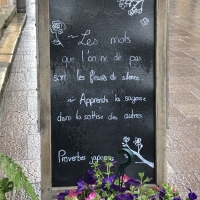 ~ Les mots
que l'on ne dit pas
sont les fleurs du silence
~ Apprends la sagesse
dans la sottise des autres
Proverbes japonais